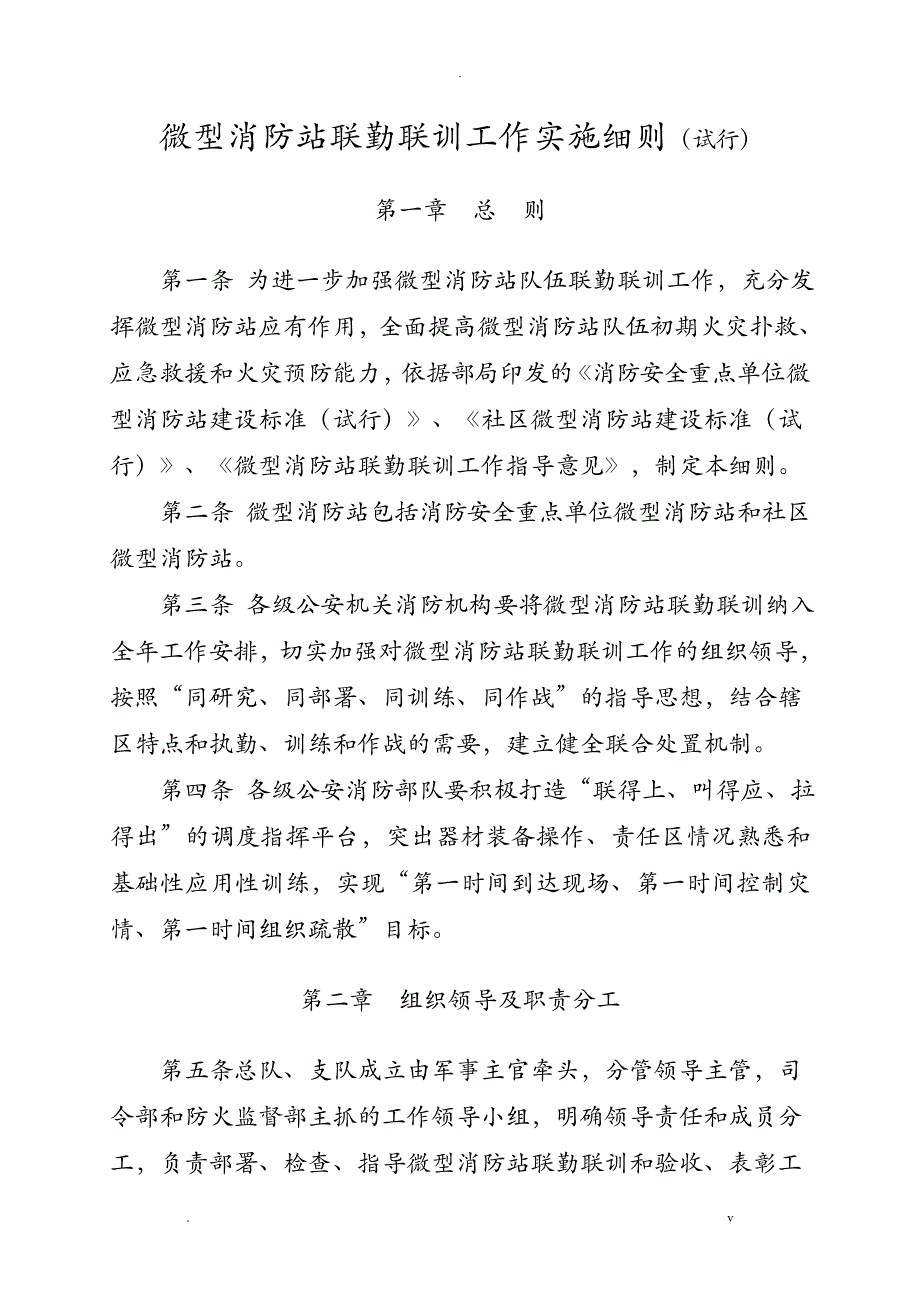 微型消防站联勤联训工作实施细则（试行）
第一章　总　则
第一条 为进一步加强微型消防站队伍联勤联训工作，充分发
挥微型消防站应有作用，全面提高微型消防站队伍初期火灾扑救、
应急救援和火灾预防能力，依据部局印发的《消防安全重点单位微
型消防站建设标准（试行）》、《社区微型消防站建设标准（试
行）》、《微型消防站联勤联训工作指导意见》，制定本细则。
第二条 微型消防站包括消防安全重点单位微型消防站和社区
微型消防站。
第三条 各级公安机关消防机构要将微型消防站联勤联训纳入
全年工作安排，切实加强对微型消防站联勤联训工作的组织领导，
按照“同研究、同部署、同训练、同作战”的指导思想，结合辖
区特点和执勤、训练和作战的需要，建立健全联合处置机制。
第四条 各级公安消防部队要积极打造“联得上、叫得应、拉
得出”的调度指挥平台，突出器材装备操作、责任区情况熟悉和
基础性应用性训练，实现“第一时间到达现场、第一时间控制灾
情、第一时间组织疏散”目标。
第二章　组织领导及职责分工
第五条总队、支队成立由军事主官牵头，分管领导主管，司
令部和防火监督部主抓的工作领导小组，明确领导责任和成员分
工，负责部署、检查、指导微型消防站联勤联训和验收、表彰工
. v